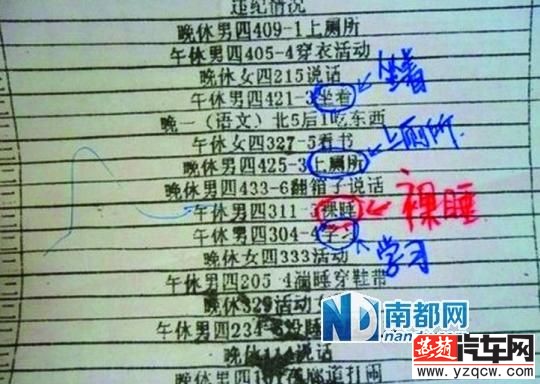 违纪情况
晚休男四409-1上厕所
午休男四405-4穿衣活动
晚休女四215说话
午休男四421-3坐着
坐着
晚一(语文)北5后1吃东西
午休女四327-5看书
晚休男四425-3上厕所
上厕所
晚休男四433-6翻箱子说话
午休男四311-3裸睡
裸睡
午休男四304-4学习
学习
晚休女四333活动
午休男四205-4湍睡穿鞋带
晚休329活动
午休男四234
晚休 说话
晚休男四 道打闹
ND南都网
燕赵汽车网
www.yzqcw.com